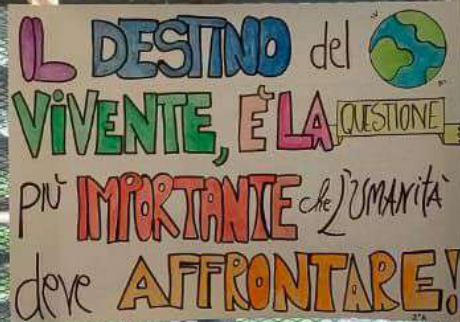 IL DESTINO del
VIVENTE, È LA QUESTIONE
PIÙ IMPORTANTE che L'UMANITÀ
deve AFFRONTARE!
2°A